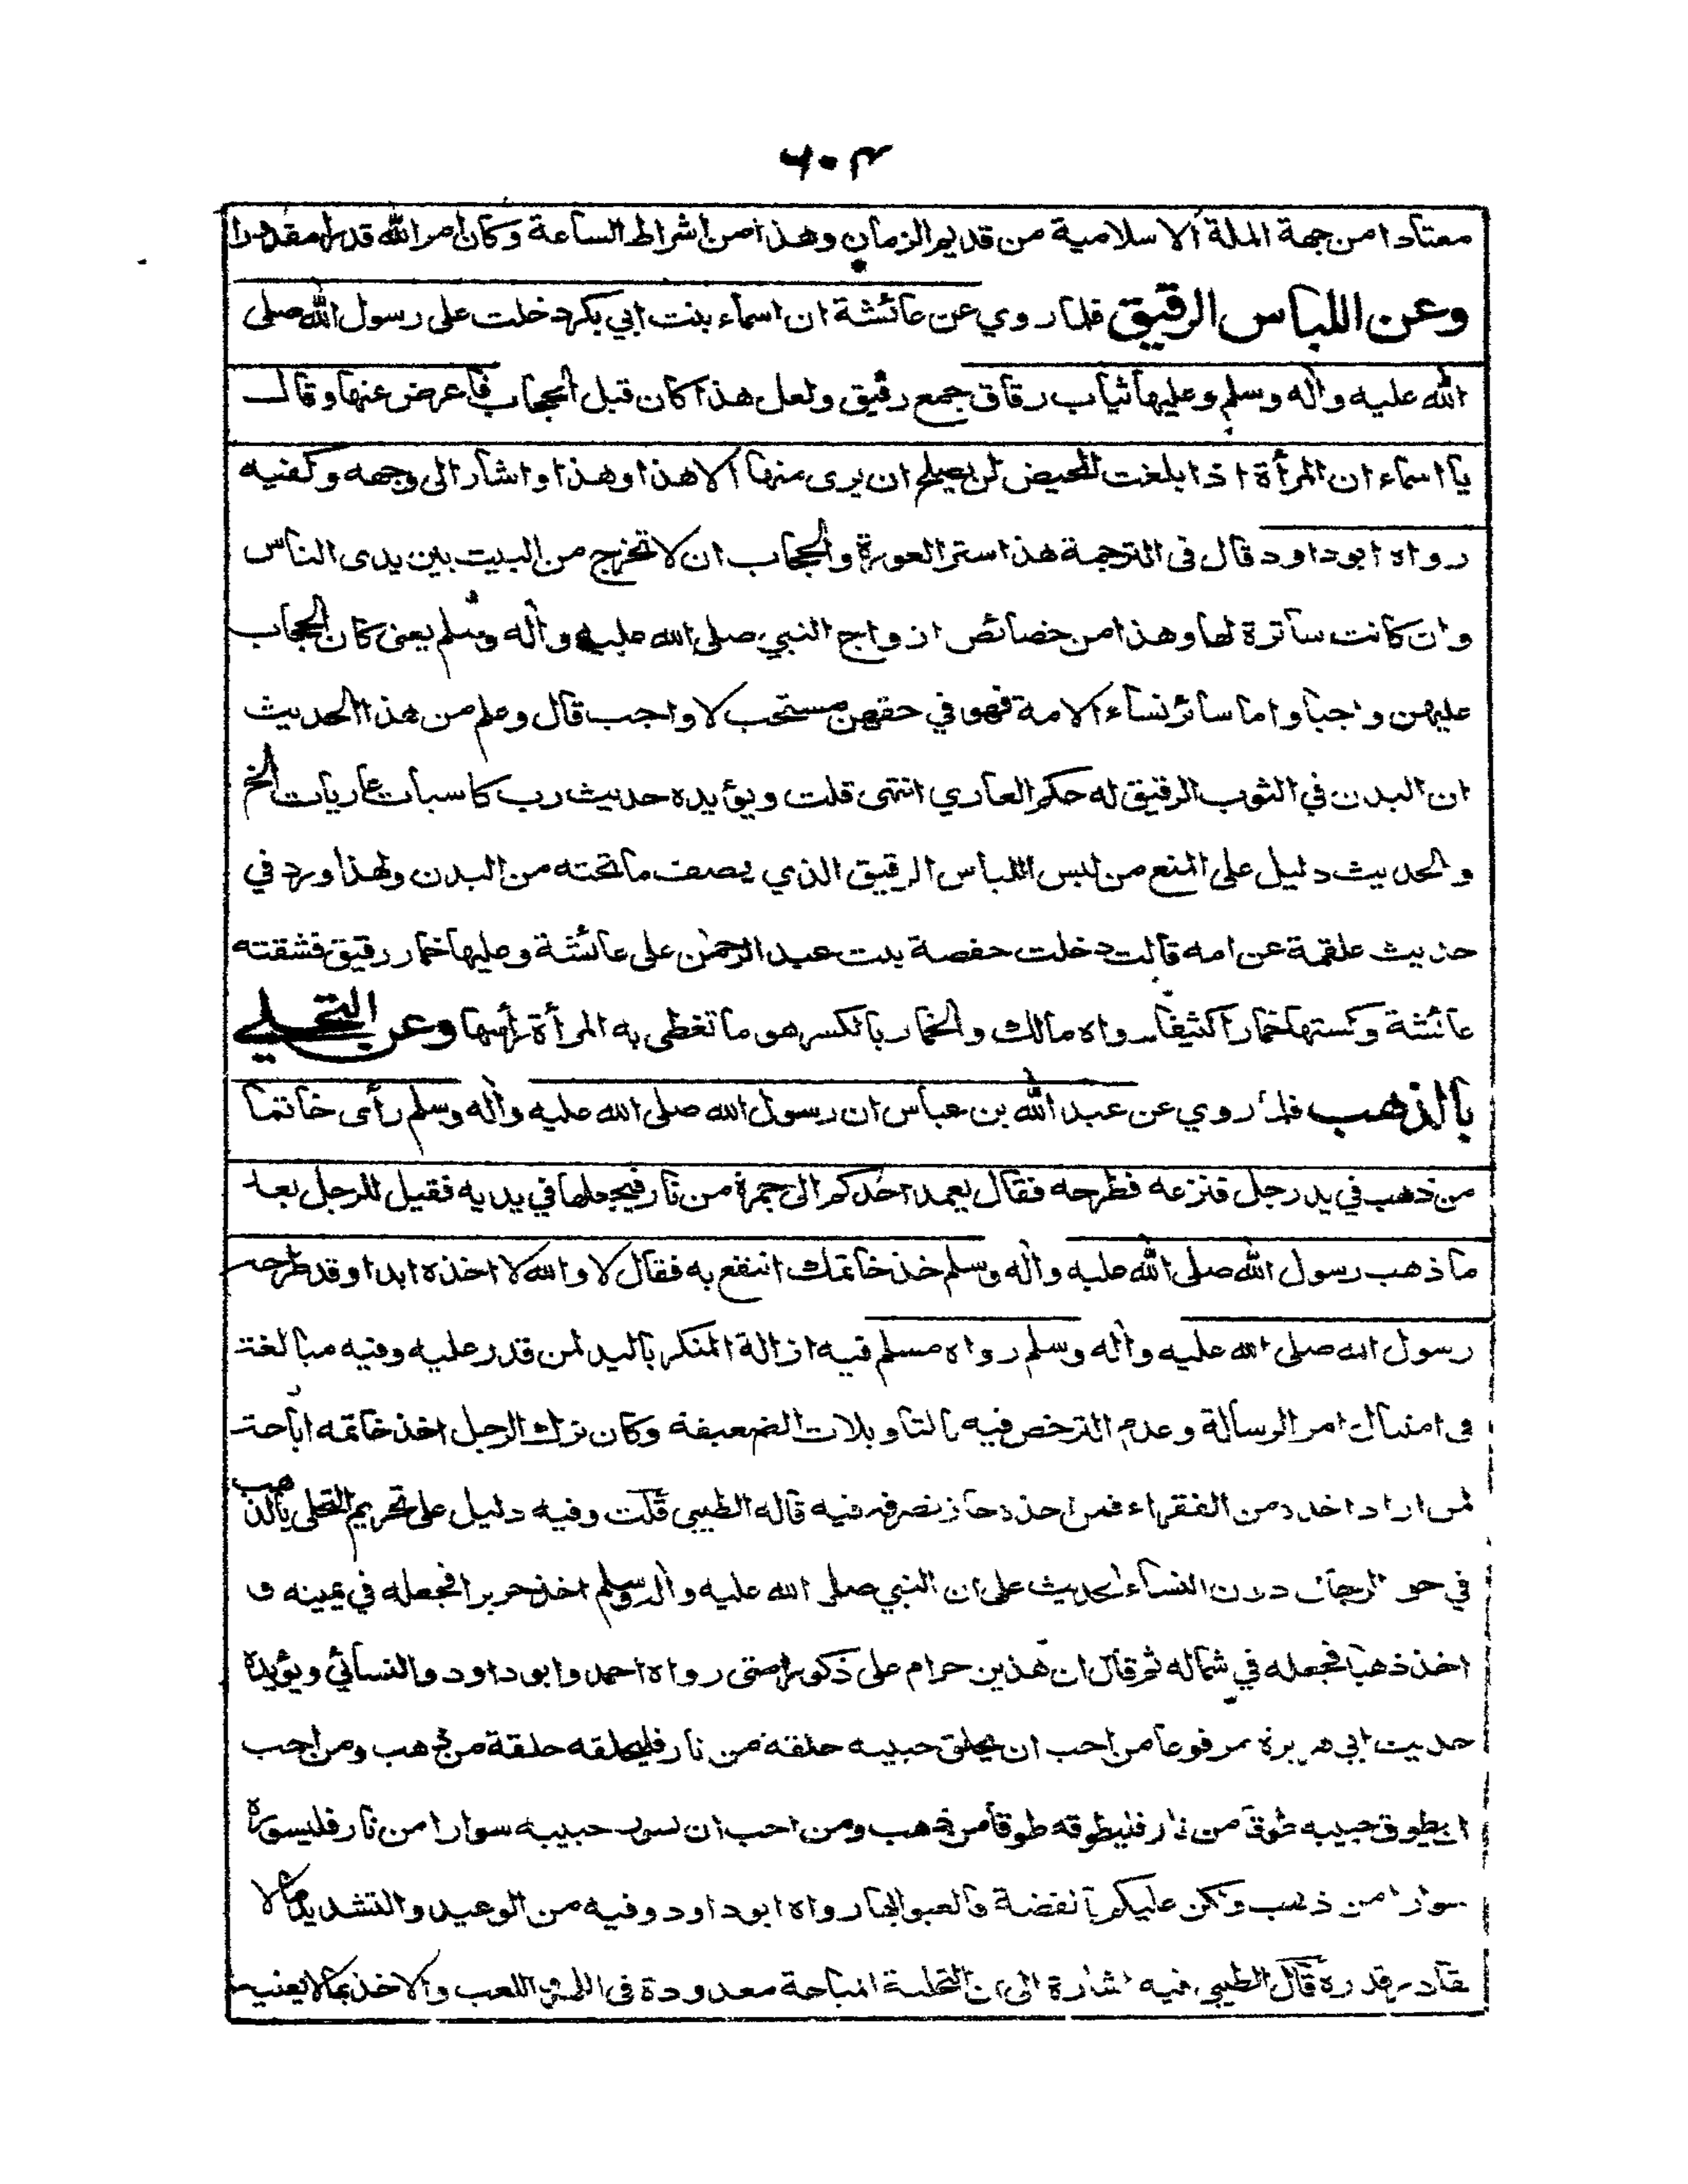 معتادا من جهة الملة الاسلامية من قديم الزمان وهذا من اشراط الساعة وكان امر الله قدرا مقدورا
وعن اللباس الرقيق فلما روي عن عائشة ان اسماء بنت ابي بكر دخلت على رسول الله صلى
الله عليه واله وسلم وعليها ثياب رقاق جمع رقيق ولعل هذا كان قبل الحجاب فاعرض عنها وقال
يا اسماء ان المرأة اذا بلغت المحيض لن يصلح ان يرى منها الا هذا وهذا واشار الى وجهه وكفيه
رواه ابو داود قال في الترجمة هذا ستر العورة والحجاب ان لا تخرج من البيت بين يدى الناس
وان كانت ساترة لها وهذا من خصائص ازواج النبي صلى الله عليه واله وسلم يعنى كان الحجاب
عليهن واجبا واما سائر نساء الامة فهو في حقهن مستحب لا واجب قال وعلم من هذا الحديث
ان البدن في الثوب الرقيق له حكم العاري انتهى قلت ويؤيده حديث رب كاسيات عاريات الخ
والحديث دليل على المنع من لبس اللباس الرقيق الذي يصف ما تحته من البدن ولهذا ورد في
حديث علقمة عن امه قالت دخلت حفصة بنت عبد الرحمن على عائشة وعليها خمار رقيق فشقته
عائشة وكستها خمارا كثيفا رواه مالك والخمار بالكسر هو ما تغطى به المرأة رأسها وعن التحلي
بالذهب فلما روي عن عبد الله بن عباس ان رسول الله صلى الله عليه واله وسلم رأى خاتما
من ذهب في يد رجل فنزعه فطرحه فقال يعمد احدكم الى جمرة من نار فيجعلها في يديه فقيل للرجل بعد
ما ذهب رسول الله صلى الله عليه واله وسلم خذ خاتمك انتفع به فقال لا والله لا اخذه ابدا وقد طرحه
رسول الله صلى الله عليه واله وسلم رواه مسلم فيه ازالة المنكر باليد لمن قدر عليه وفيه مبالغة
فى امتثال امر الرسالة وعدم الترخص فيه بالتاويلات الضعيفة وكان ترك الرجل اخذ خاتمه اباحة
لمن اراد اخذه من الفقراء فمن اخذه جاز تصرفه فيه قاله الطيبي قلت وفيه دليل على تحريم التحلي بالذهب
في حق الرجال دون النساء لحديث على ان النبي صلى الله عليه واله وسلم اخذ حريرا فجعله في يمينه و
اخذ ذهبا فجعله في شماله ثم قال ان هذين حرام على ذكور امتى رواه احمد وابو داود والنسائي ويؤيده
حديث ابي هريرة مرفوعا من احب ان يحلق حبيبه حلقة من نار فليحلقه حلقة من ذهب ومن احب
ان يطوق حبيبه طوقا من نار فليطوقه طوقا من ذهب ومن احب ان يسور حبيبه سوارا من نار فليسوره
سوارا من ذهب ولكن عليكم بالفضة فالعبوا بها رواه ابو داود وفيه من الوعيد والتشديد ما لا
يقادر قدره قال الطيبي فيه اشارة الى ان التحلية المباحة معدودة في اللهو واللعب والاخذ بما لا يعنيه